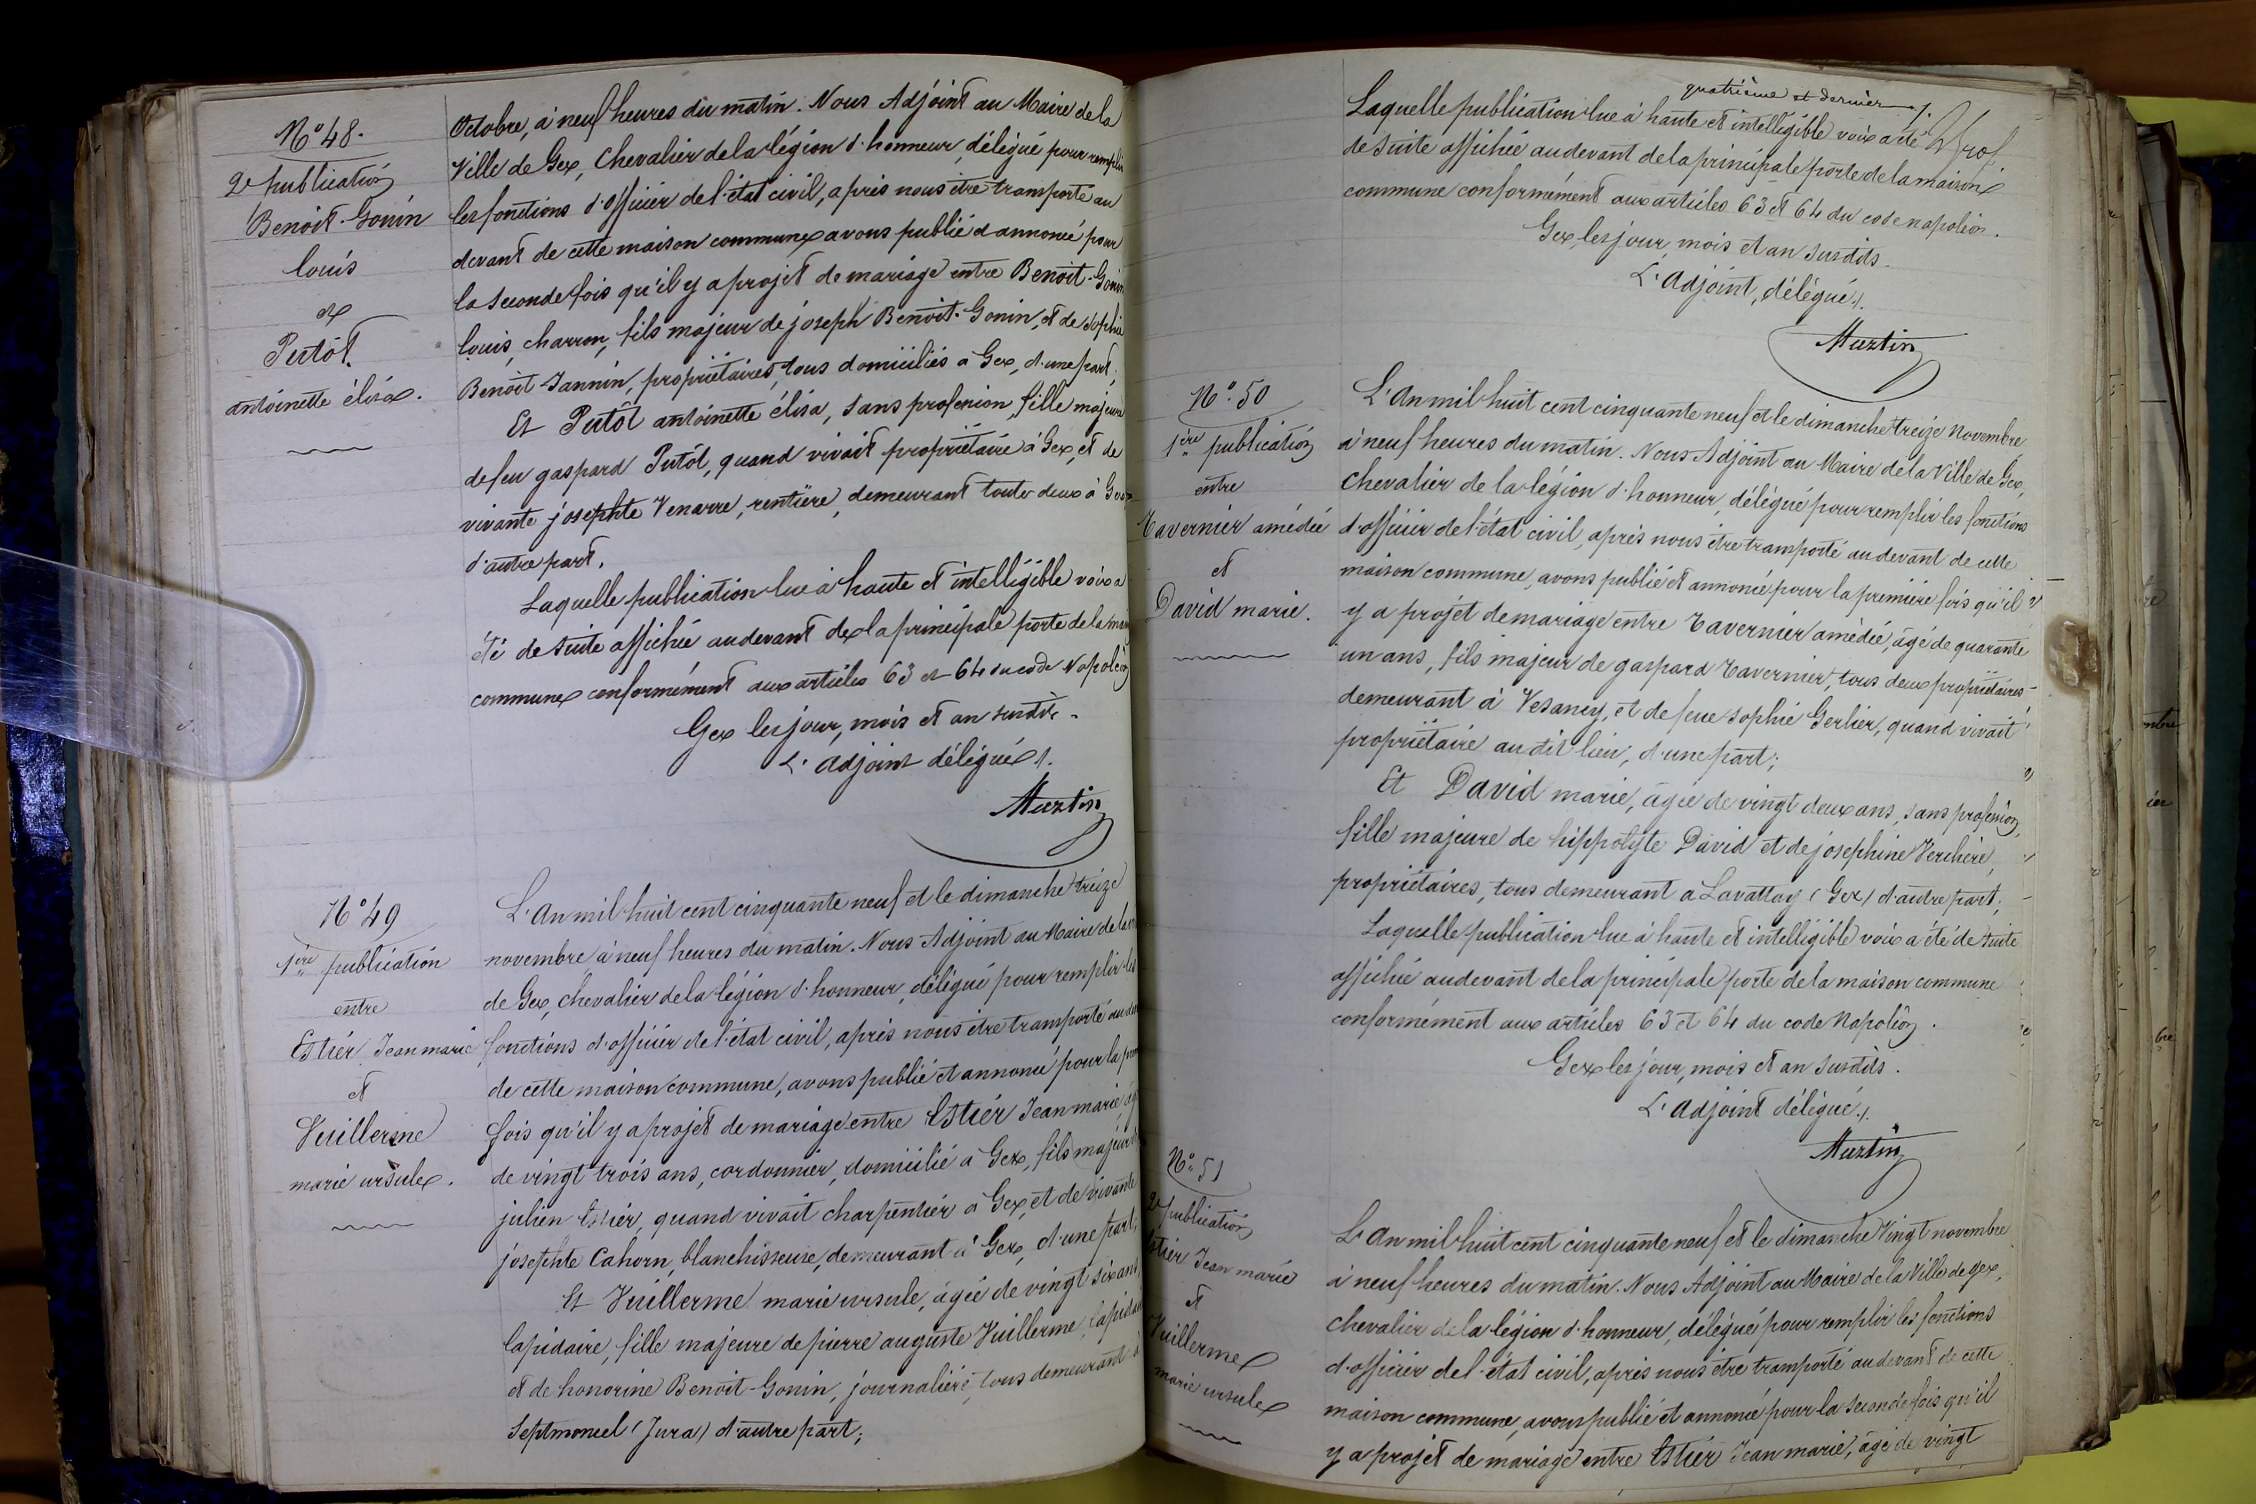 N° 48.
2e publication
Benoit-Gonin
louis
et
Putôt
antoinette élisa.
Octobre, à neuf heures du matin. Nous Adjoint au Maire de la
Ville de Gex, Chevalier de la légion d'honneur, délégué pour remplir
les fonctions d'officier de l'état civil, après nous être transporté au
devant de cette maison commune avons publié et annoncé pour
la seconde fois qu'il y a projet de mariage entre Benoit-Gonin
louis, charron, fils majeur de joseph Benoit-Gonin, et de Sophie
Benoit-Jannin, propriétaires, tous domiciliés à Gex, d'une part,
Et Putôt antoinette élisa, sans profession, fille majeure
de feu gaspard Putôt, quand vivait propriétaire à Gex, et de
vivante josephte Venarre, rentière, demeurant toutes deux à Gex
d'autre part.
Laquelle publication lue à haute et intelligible voix a
été de suite affichée au devant de la principale porte de la
commune conformément aux articles 63 et 64 du code Napoléon
Gex les jour, mois et an susdits.
L'adjoint délégué
Muztin
N° 49
1ère publication
entre
Estier Jean marie
et
Vuillerme
marie ursule.
L'An mil huit cent cinquante neuf et le dimanche treize
novembre à neuf heures du matin. Nous Adjoint au Maire de la
de Gex, chevalier de la légion d'honneur, délégué pour remplir les
fonctions d'officier de l'état civil, après nous être transporté au
de cette maison commune, avons publié et annoncé pour la
fois qu'il y a projet de mariage entre Estier Jean marie,
de vingt trois ans, cordonnier, domicilié à Gex, fils majeur
julien Estier, quand vivait charpentier à Gex, et de vivante
josephte Cahorn, blanchisseuse, demeurant à Gex, d'une part;
Et Vuillerme marie ursule, âgée de vingt six ans,
lapidaire, fille majeure de pierre auguste Vuillerme,
et de honorine Benoit-Gonin, journalière, tous demeurant à
Septmoncel (Jura) d'autre part;
quatrième et dernier
Laquelle publication lue à haute et intelligible voix a été
de suite affichée au devant de la principale porte de la maison
commune conformément aux articles 63 et 64 du code napoléon.
Gex, les jour, mois et an susdits.
L'Adjoint, délégué
Muztin
N° 50
1ère publication
entre
Tavernier amédée
et
David marie.
L'An mil huit cent cinquante neuf et le dimanche treize Novembre
à neuf heures du matin. Nous Adjoint au Maire de la Ville de Gex,
Chevalier de la légion d'honneur, délégué pour remplir les fonctions
d'officier de l'état civil, après nous être transporté au devant de cette
maison commune, avons publié et annoncé pour la première fois qu'il
y a projet de mariage entre Tavernier amédée, âgé de quarante
un ans, fils majeur de gaspard Tavernier, tous deux propriétaires
demeurant à Vesancy, et de feue sophie Gerlier, quand vivait
propriétaire au dit lieu, d'une part;
Et David marie, âgée de vingt deux ans, sans profession,
fille majeure de hippolyte David et de josephine Verchère,
propriétaires, tous demeurant à Lavattay (Gex) d'autre part;
Laquelle publication lue à haute et intelligible voix a été de suite
affichée au devant de la principale porte de la maison commune
conformément aux articles 63 et 64 du code Napoléon.
Gex les jour, mois et an susdits.
L'Adjoint délégué
Muztin
N° 51
2e publication
Estier Jean marie
et
Vuillerme
marie ursule
L'An mil huit cent cinquante neuf et le dimanche Vingt novembre
à neuf heures du matin. Nous Adjoint au Maire de la Ville de gex,
Chevalier de la légion d'honneur, délégué pour remplir les fonctions
d'officier de l'état civil, après nous être transporté au devant de cette
maison commune, avons publié et annoncé pour la seconde fois qu'il
y a projet de mariage entre Estier Jean marie, âgé de vingt